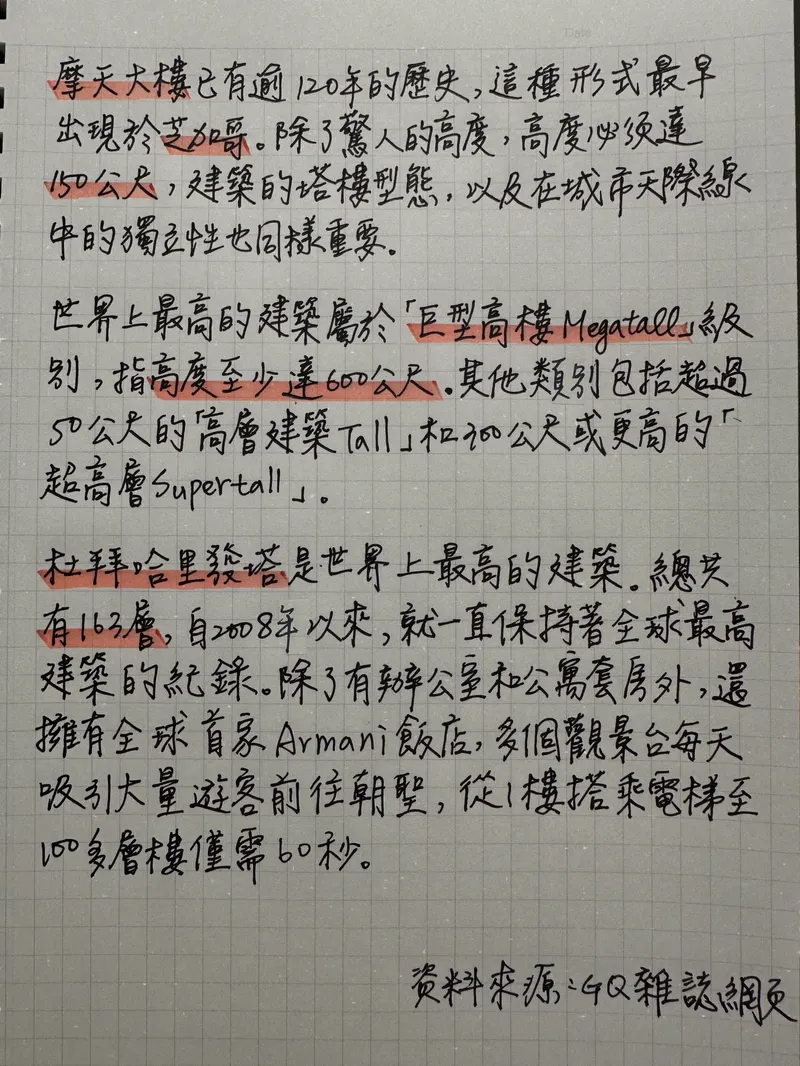 Date
摩天大樓已有逾120年的歷史，這種形式最早
出現於芝加哥。除了驚人的高度，高度必须達
150公尺，建築的塔樓型態，以及在城市天際線
中的獨立性也同樣重要。
世界上最高的建築屬於「巨型高樓Megatall」級
別，指高度至少達600公尺。其他類別包括超過
50公尺的「高層建築Tall」和300公尺或更高的「
超高層Supertall」。
杜拜哈里發塔是世界上最高的建築。總共
有163層，自2008年以來，就一直保持著全球最高
建築的紀錄。除了有辦公室和公寓套房外，還
擁有全球首家Armani飯店，多個觀景台每天
吸引大量遊客前往朝聖，從1樓搭乘電梯至
100多層樓僅需60秒。
資料來源：GQ雜誌網页